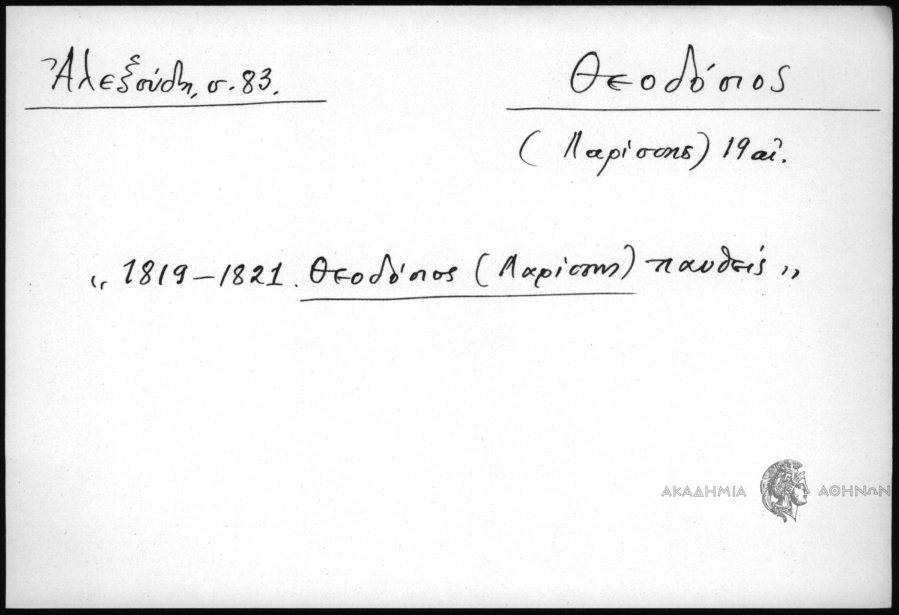 Ἀλεξούδη, σ. 83.
Θεοδόσιος
(Λαρίσσης) 19 αἰ.
„ 1819 – 1821. Θεοδόσιος (Λαρίσσης) παυθείς „
ΑΚΑΔΗΜΙΑ ΑΘΗΝΩΝ